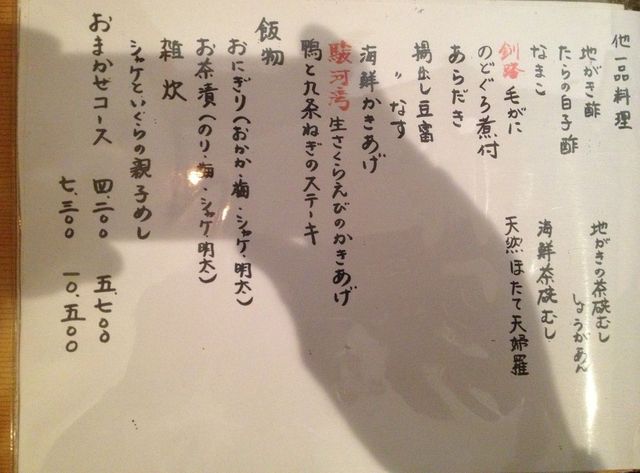 他一品料理
地がき酢
たらの白子酢
なまこ
釧路 毛がに
のどぐろ煮付
あらだき
揚出し豆富
〃 なす
海鮮かきあげ
駿河湾 生さくらえびのかきあげ
鴨と九条ねぎのステーキ
地がきの茶碗むし
しょうがあん
海鮮茶碗むし
天然ほたて天婦羅
飯物
おにぎり(おかか・梅・シャケ・明太)
お茶漬(のり・梅・シャケ・明太)
雑炊
シャケといくらの親子めし
おまかせコース 四.二〇〇 五.七〇〇
七.三〇〇 一〇.五〇〇